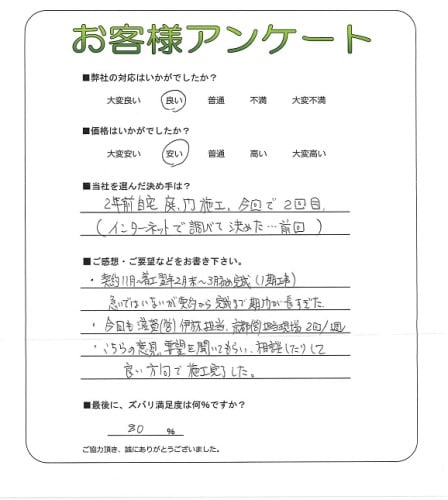 お客様アンケート
■弊社の対応はいかがでしたか？
大変良い 良い 普通 不満 大変不満
■価格はいかがでしたか？
大変安い 安い 普通 高い 大変高い
■当社を選んだ決め手は？
2年前自宅 庭、門施工、今回で2回目。
(インターネットで調べて決めた…前回)
■ご感想・ご要望などをお書き下さい。
・契約11月〜着工翌年2月末〜3月初完成(1期工事)
急いではいないが契約から完成まで期間が長すぎた。
・今回も滋賀(営) 担当、京都(営) 現場 2回/週
・こちらの意見、要望を聞いてもらい、相談したりして
良い方向で施工完了した。
■最後に、ズバリ満足度は何%ですか？
80 %
ご協力頂き、誠にありがとうございました。